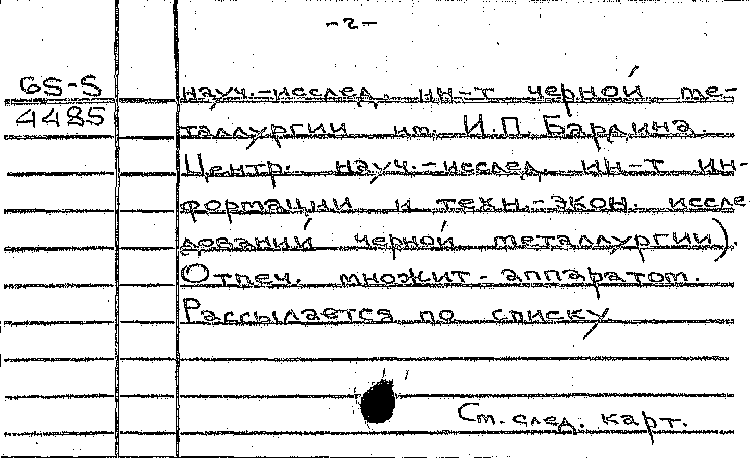 -2-
65-5
4485
науч.-исслед. ин-т черной ме-
таллургии им. И.П. Бардина.
Центр. науч.-исслед. ин-т ин-
формации и техн.-экон. иссле
дований черной металлургии).
Отпеч. множит-аппаратом.
Рассылается по списку
См. след. карт.